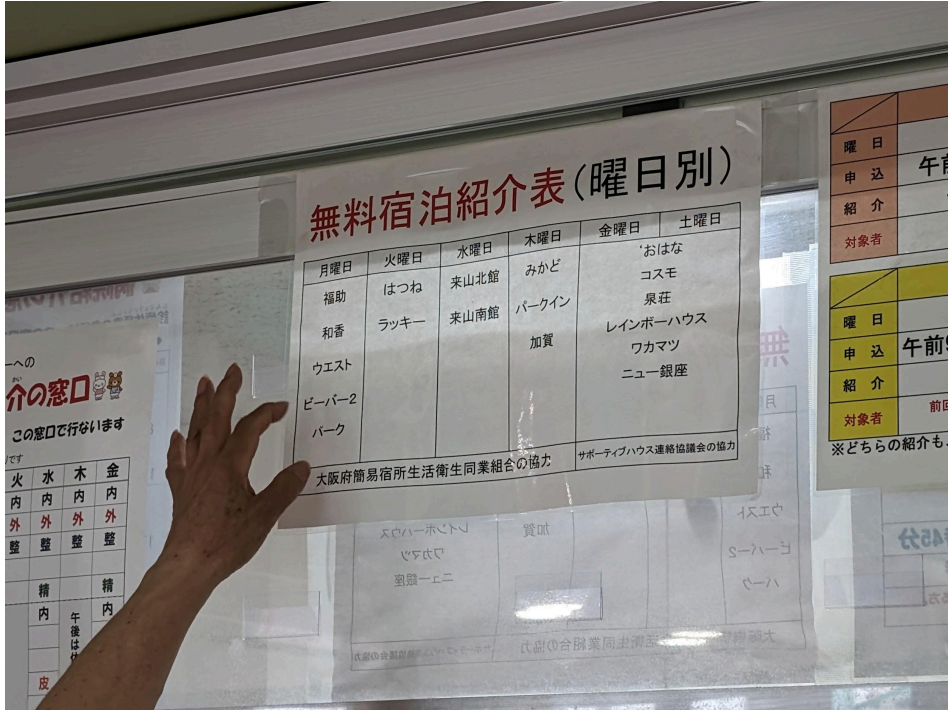 無料宿泊紹介表(曜日別)
月曜日 火曜日 水曜日 木曜日 金曜日 土曜日
福助 はつね 来山北館 みかど おはな
和香 ラッキー 来山南館 パークイン コスモ
ウエスト 加賀 泉荘
ビーバー2 レインボーハウス
パーク ワカマツ
ニュー銀座
大阪府簡易宿所生活衛生同業組合の協力 サポーティブハウス連絡協議会の協力
ーへの
介の窓口
かい
この窓口で行ないます
です
火 水 木 金
内 内 内 内
外 外 外 外
整 整 整 整
精 精
内 午後は 内
皮
曜日
申込 午前
紹介
対象者
曜日
申込 午前9
紹介
対象者 前回
※どちらの紹介も、
無
月
福
和
ウエスト
ビーバー2
パーク
レインボーハウス 加賀
ワカマツ
ニュー銀座
45分